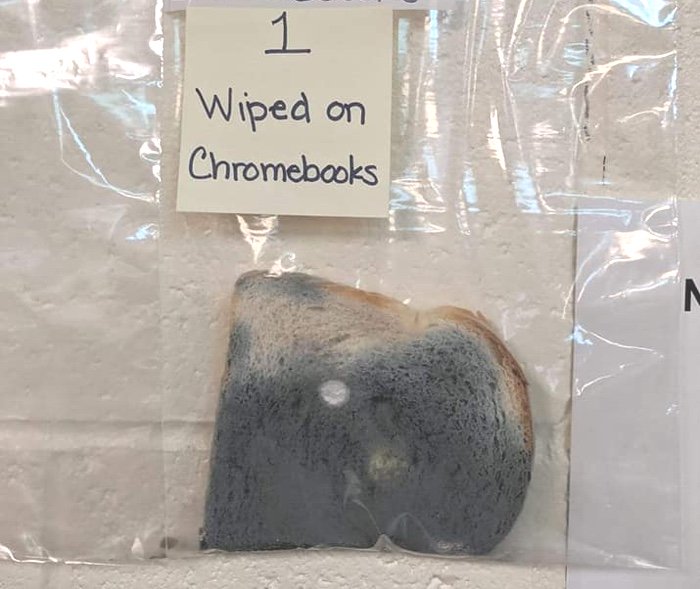 1
Wiped on
Chromebooks
N